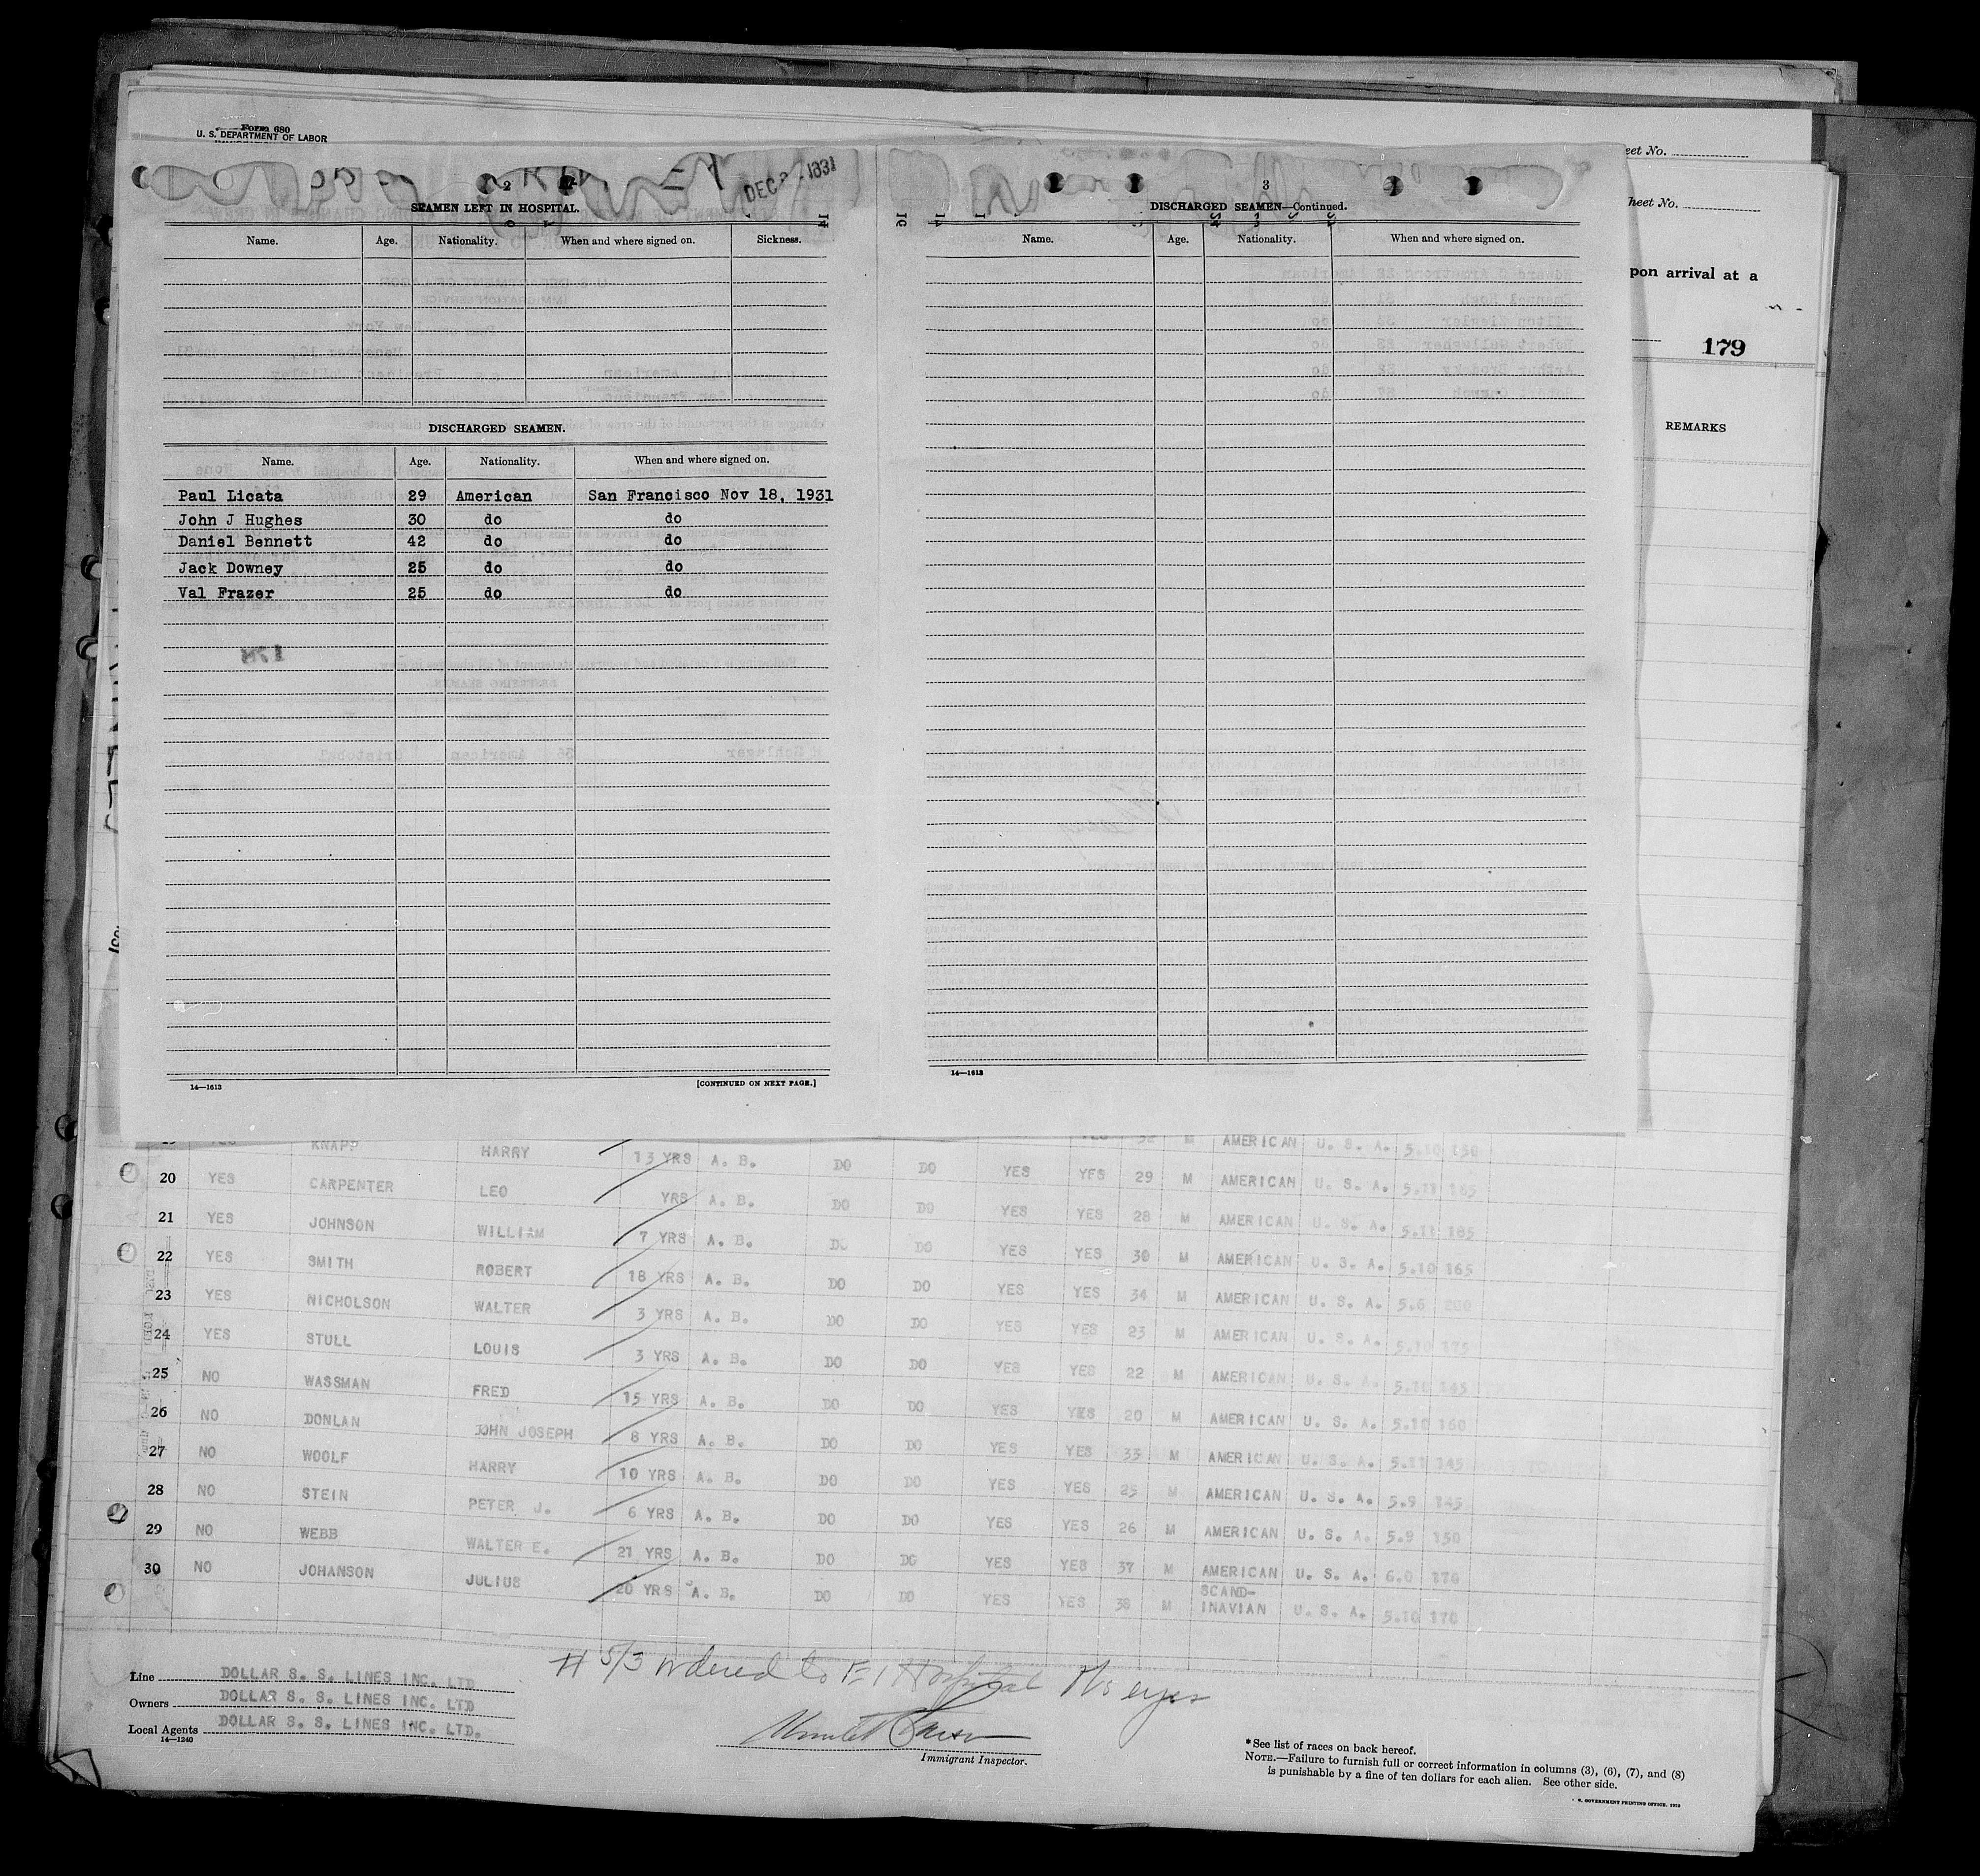 Form 680
U. S. DEPARTMENT OF LABOR
DEC 1931
2
SEAMEN LEFT IN HOSPITAL.
Name. Age. Nationality. When and where signed on. Sickness.
DISCHARGED SEAMEN.
Name. Age. Nationality. When and where signed on.
Paul Licata 29 American San Francisco Nov 18, 1931
John J Hughes 30 do do
Daniel Bennett 42 do do
Jack Downey 25 do do
Val Frazer 25 do do
14—1613 [CONTINUED ON NEXT PAGE.]
3
DISCHARGED SEAMEN—Continued.
Name. Age. Nationality. When and where signed on.
14—1613
eet No.
heet No.
pon arrival at a
179
REMARKS
KNAPP HARRY 13 YRS A. B. DO DO YES YES 29 M AMERICAN U. S. A. 5.10 150
20 YES CARPENTER LEO YRS A. B. DO DO YES YES 28 M AMERICAN U. S. A. 5.11 185
21 YES JOHNSON WILLIAM 7 YRS A. B. DO DO YES YES 30 M AMERICAN U. S. A. 5.11 185
22 YES SMITH ROBERT 18 YRS A. B. DO DO YES YES 34 M AMERICAN U. S. A. 5.10 165
23 YES NICHOLSON WALTER 3 YRS A. B. DO DO YES YES 23 M AMERICAN U. S. A. 5.6 200
24 YES STULL LOUIS 3 YRS A. B. DO DO YES YES 22 M AMERICAN U. S. A. 5.10 175
25 NO WASSMAN FRED 15 YRS A. B. DO DO YES YES 20 M AMERICAN U. S. A. 5.10 145
26 NO DONLAN JOHN JOSEPH 8 YRS A. B. DO DO YES YES 33 M AMERICAN U. S. A. 5.10 160
27 NO WOOLF HARRY 10 YRS A. B. DO DO YES YES 25 M AMERICAN U. S. A. 5.11 145
28 NO STEIN PETER J. 6 YRS A. B. DO DO YES YES 26 M AMERICAN U. S. A. 5.9 145
29 NO WEBB WALTER E. 21 YRS A. B. DO DO YES YES 37 M AMERICAN U. S. A. 5.9 150
30 NO JOHANSON JULIUS 20 YRS A. B. DO DO YES YES 38 M AMERICAN U. S. A. 6.0 170
SCAND-
INAVIAN U. S. A. 5.10 170
Line DOLLAR S. S. LINES INC. LTD
Owners DOLLAR S. S. LINES INC. LTD
Local Agents DOLLAR S. S. LINES INC. LTD.
14—1240
# 5/3 ordered to E I Hospital eyes
Immigrant Inspector.
* See list of races on back hereof.
NOTE.—Failure to furnish full or correct information in columns (3), (6), (7), and (8)
is punishable by a fine of ten dollars for each alien. See other side.
GOVERNMENT PRINTING OFFICE